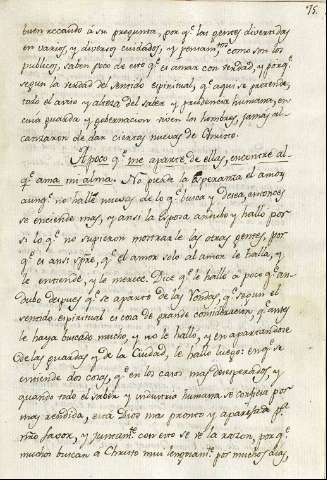 75.
buen recaudo a su pregunta, por q.e las gentes divertidas
en varios, y diversos cuidados, y pensam.tos como son los
publicos, saben poco de esto q.e es amar con verdad, y porq.e
segun la verdad del sentido espiritual, q.e aqui se pretende,
todo el aviso y alteza del saber y prudencia humana, en
cuia guarda y gobernacion viven los hombres, jamas al-
canzaron de dar ciertas nuevas de Christo.
A poco q.e me aparte de ellas, encontre al
q.e ama mi alma. No pierde la esperanza el amor
aunq.e no halle nuevas de lo q.e busca y desea, entonces
se enciende mas, y ansi la Esposa andubo y hallo por
si lo q.e no supieron mostrarle las otras gentes, por
q.e es ansi spre, q.e el amor solo al amor le halla, y
le entiende, y le merece. Dice q.e le hallo a poco q.e an-
dubo despues q.e se aparto de las Rondas, q.e segun el
sentido espiritual es cosa de grande consideracion, q.e antes
le haya buscado mucho, y no le hallo, y en apartandose
de las guardas y de la Ciudad, le hallo luego en q.e se
entiende dos cosas, q.e en los casos mas desesperados, y
quando todo el saber y industria humana se confiesa por
mas rendida, està Dios mas pronto y aparejado p.a
nro favor, y juntam.te con esto se ve la razon, porq.e
muchos buscan a Christo mui por muchos dias,